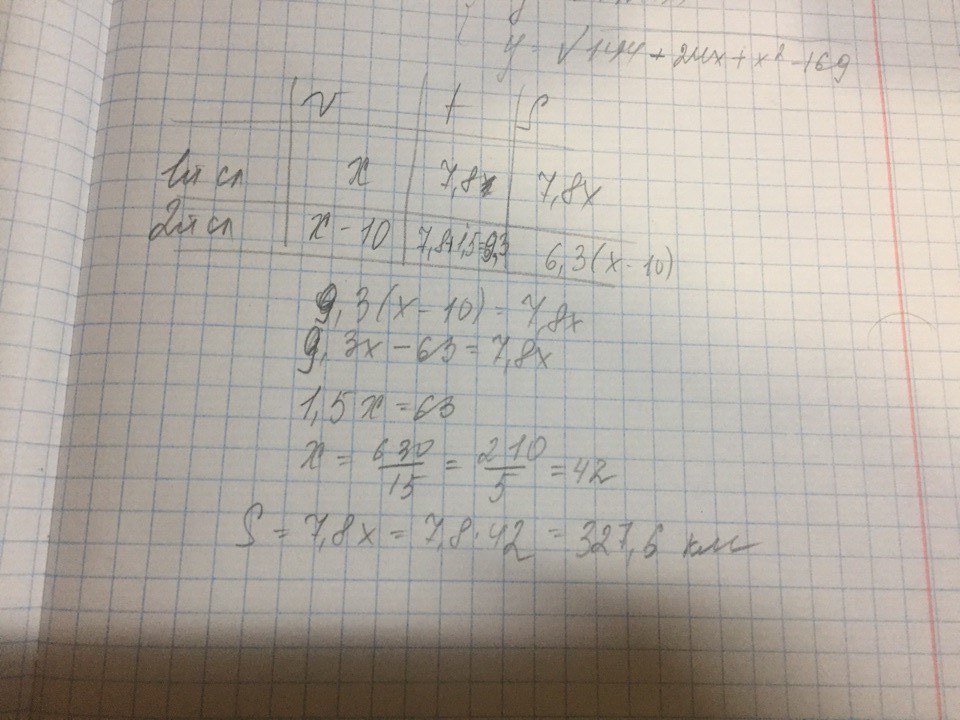 y = √144 + 24x + x² - 169
v t S
1й сл x 7,8 7,8x
2й сл x - 10 7,8+1,5=9,3 6,3(x-10)
9,3(x-10) = 7,8x
9,3x - 63 = 7,8x
1,5x = 63
x = 630/15 = 210/5 = 42
S = 7,8x = 7,8·42 = 327,6 км